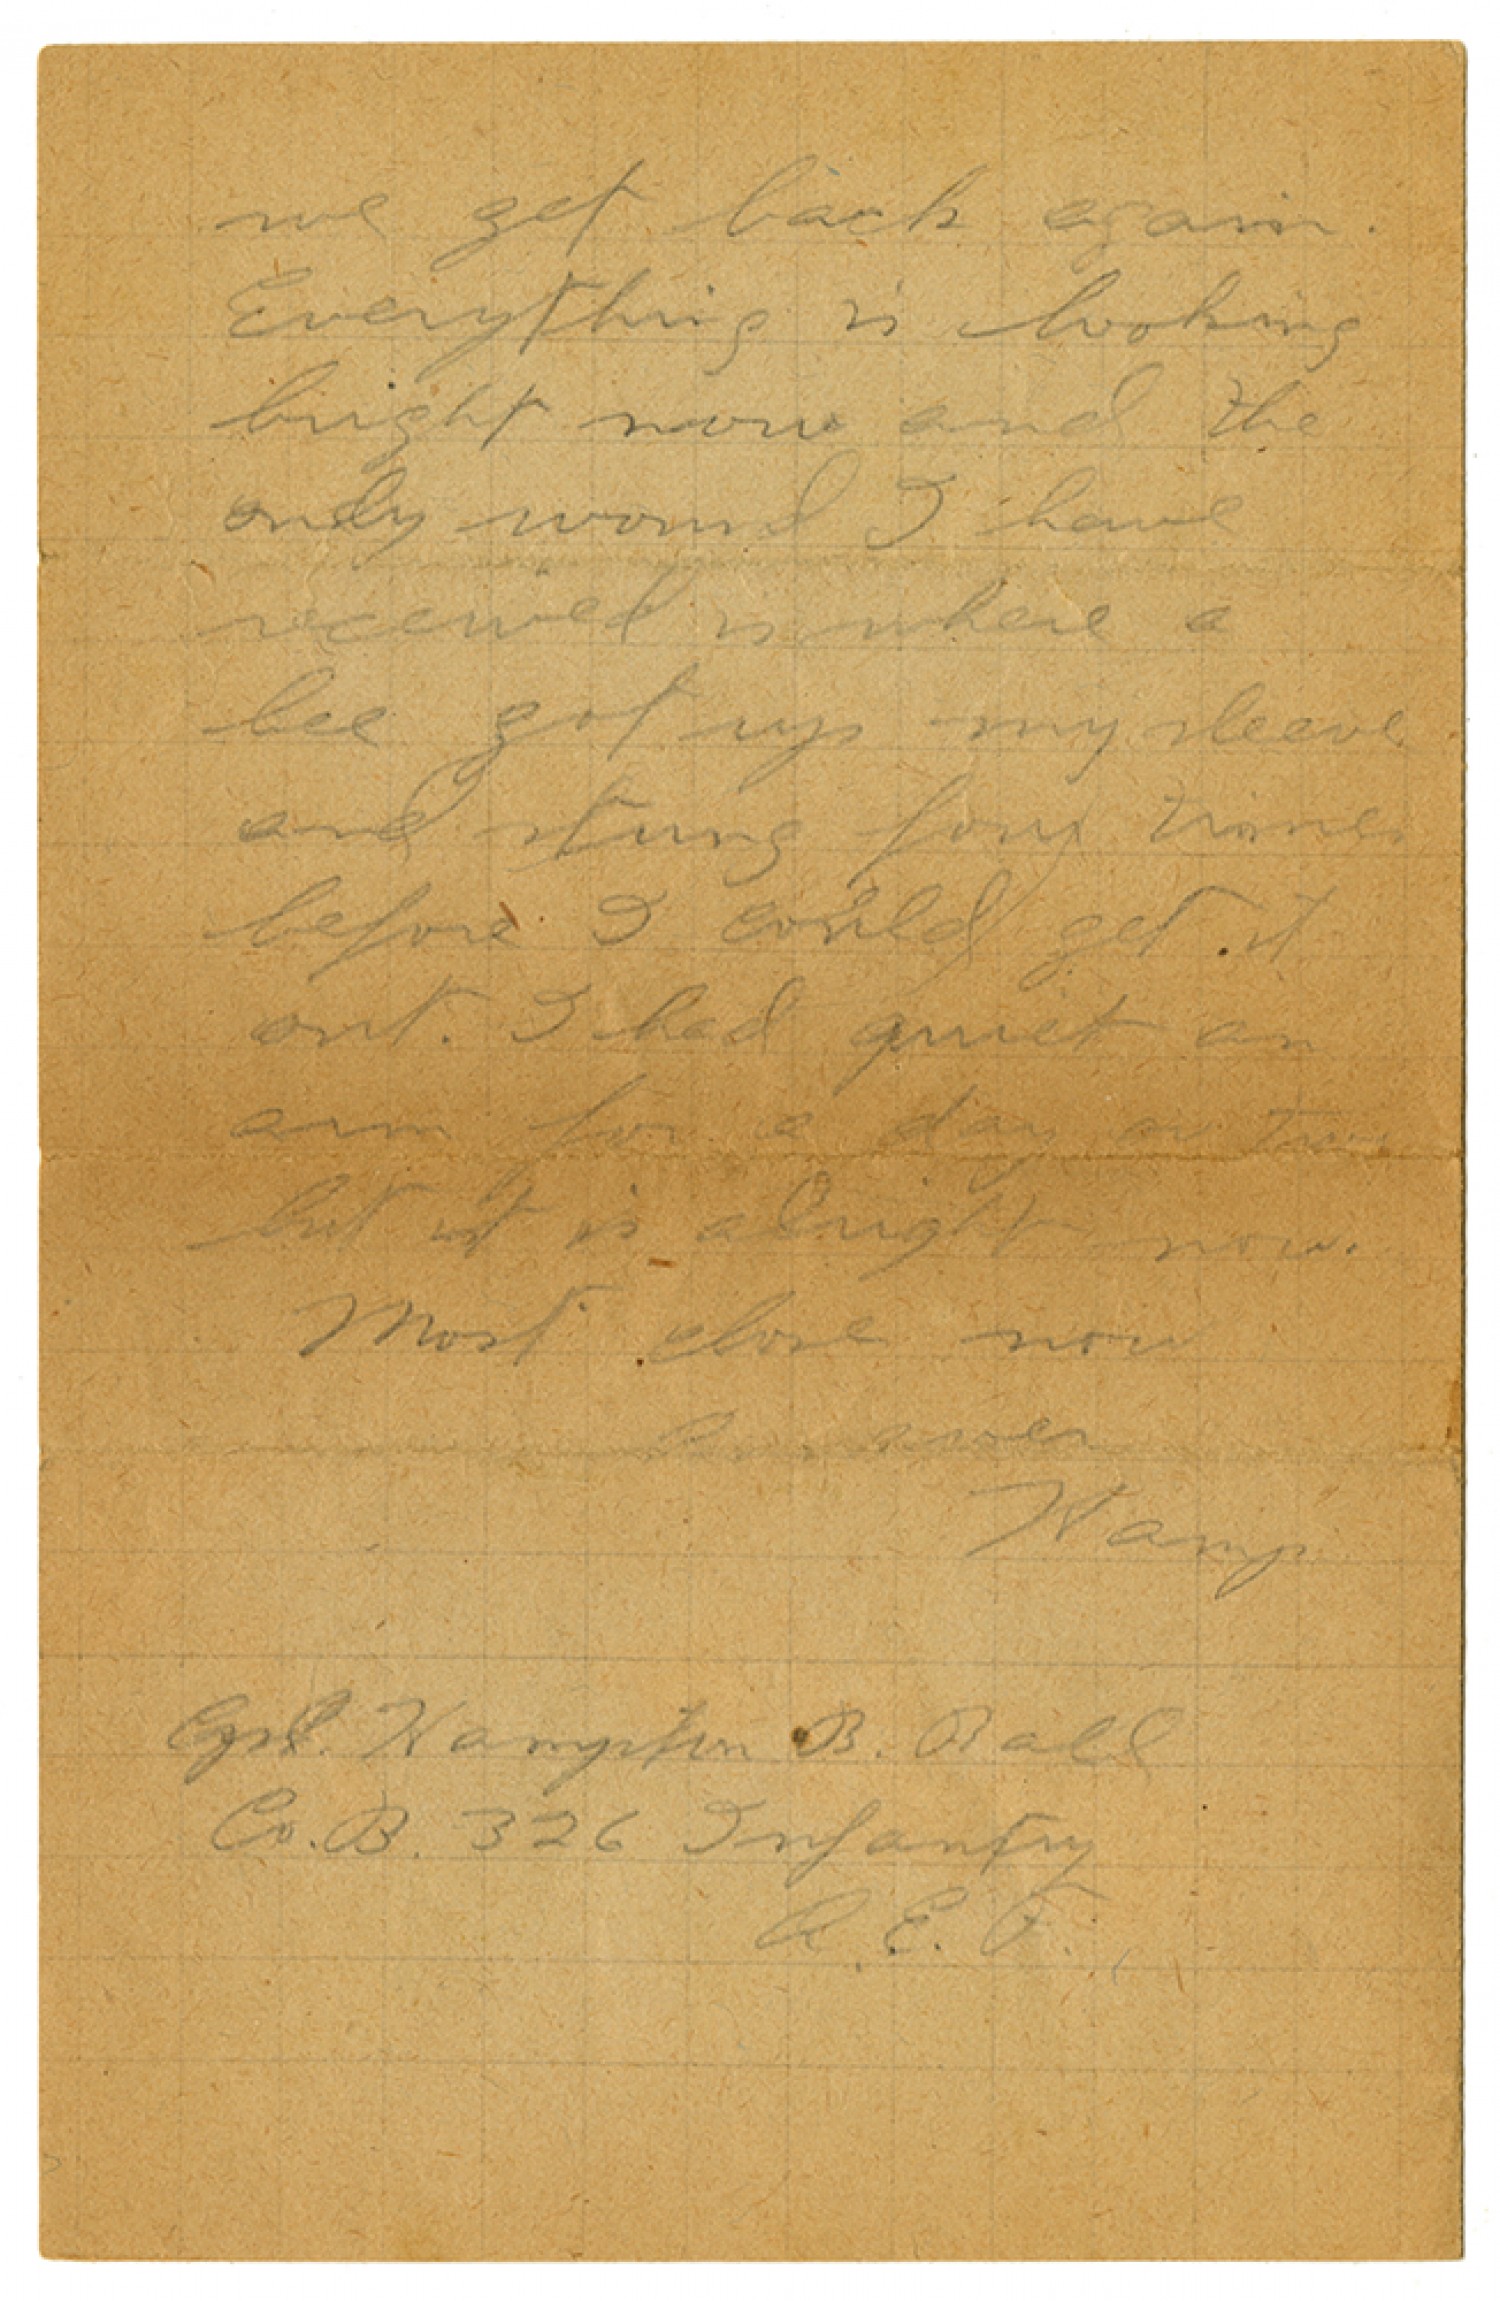 we get back again.
Everything is looking
bright now and the
only wound I have
received is where a
bee got up my sleeve
and stung four times
before I could get it
out. I had quiet an
arm for a day or two
but it is alright now.
Must close now
Kamp
Cpl. Hampton B. Ball
Co. B. 326 Infantry
A. E. F.